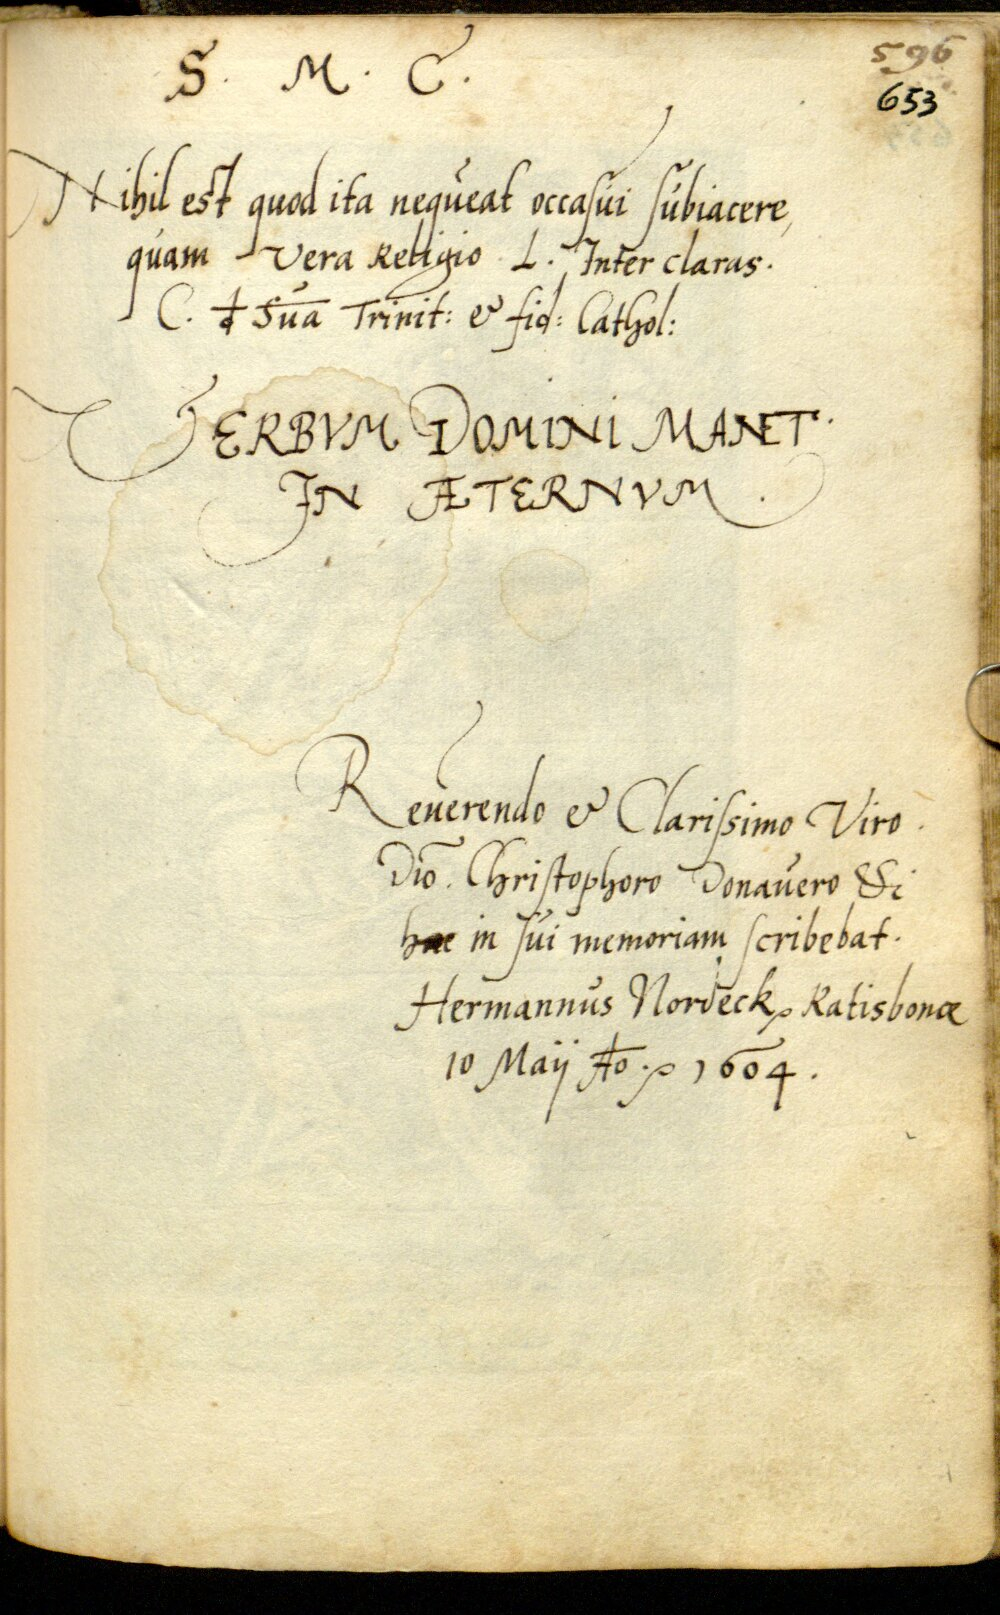 596
653
S. M. C.
Nihil est quod ita nequeat occasui subiacere,
quam Vera Religio L. Inter claras.
C. d Sũa Trinit: & fid: Cathol:
VERBVM DOMINI MANET
IN ÆTERNVM.
Reuerendo & Clarissimo Viro
Dnõ. Christophoro Donauero &c
hae in sui memoriam scribebat.
Hermannus Nordeck, Ratisbonæ
10 Maij Ao. 1604.